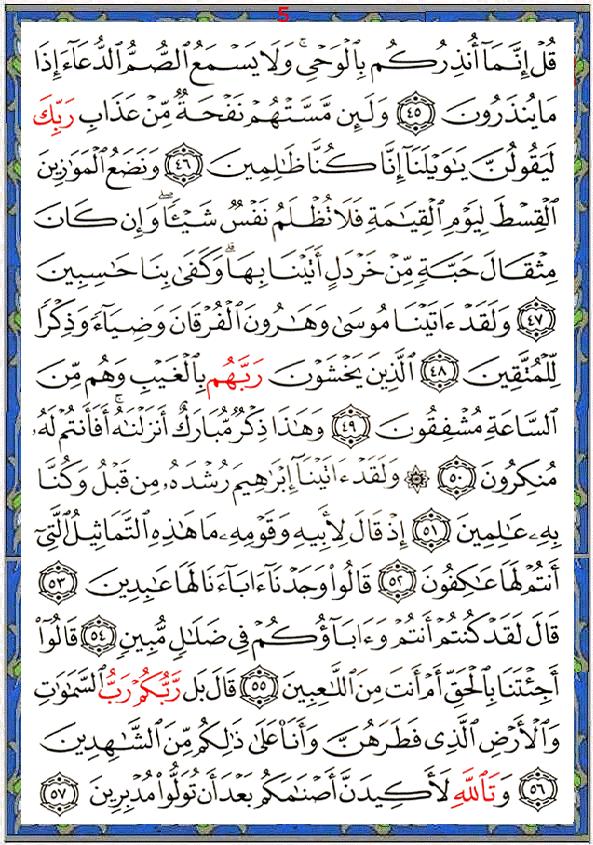 5
قُلْ إِنَّمَآ أُنذِرُكُم بِٱلْوَحْىِ ۚ وَلَا يَسْمَعُ ٱلصُّمُّ ٱلدُّعَآءَ إِذَا
مَا يُنذَرُونَ ٤٥ وَلَئِن مَّسَّتْهُمْ نَفْحَةٌ مِّنْ عَذَابِ رَبِّكَ
لَيَقُولُنَّ يَٰوَيْلَنَآ إِنَّا كُنَّا ظَٰلِمِينَ ٤٦ وَنَضَعُ ٱلْمَوَٰزِينَ
ٱلْقِسْطَ لِيَوْمِ ٱلْقِيَٰمَةِ فَلَا تُظْلَمُ نَفْسٌ شَيْـًٔا ۖ وَإِن كَانَ
مِثْقَالَ حَبَّةٍ مِّنْ خَرْدَلٍ أَتَيْنَا بِهَا ۗ وَكَفَىٰ بِنَا حَٰسِبِينَ
٤٧ وَلَقَدْ ءَاتَيْنَا مُوسَىٰ وَهَٰرُونَ ٱلْفُرْقَانَ وَضِيَآءً وَذِكْرًا
لِّلْمُتَّقِينَ ٤٨ ٱلَّذِينَ يَخْشَوْنَ رَبَّهُم بِٱلْغَيْبِ وَهُم مِّنَ
ٱلسَّاعَةِ مُشْفِقُونَ ٤٩ وَهَٰذَا ذِكْرٌ مُّبَارَكٌ أَنزَلْنَٰهُ ۚ أَفَأَنتُمْ لَهُۥ
مُنكِرُونَ ٥٠ ۞ وَلَقَدْ ءَاتَيْنَآ إِبْرَٰهِيمَ رُشْدَهُۥ مِن قَبْلُ وَكُنَّا
بِهِۦ عَٰلِمِينَ ٥١ إِذْ قَالَ لِأَبِيهِ وَقَوْمِهِۦ مَا هَٰذِهِ ٱلتَّمَاثِيلُ ٱلَّتِىٓ
أَنتُمْ لَهَا عَٰكِفُونَ ٥٢ قَالُوا۟ وَجَدْنَآ ءَابَآءَنَا لَهَا عَٰبِدِينَ ٥٣
قَالَ لَقَدْ كُنتُمْ أَنتُمْ وَءَابَآؤُكُمْ فِى ضَلَٰلٍ مُّبِينٍ ٥٤ قَالُوٓا۟
أَجِئْتَنَا بِٱلْحَقِّ أَمْ أَنتَ مِنَ ٱللَّٰعِبِينَ ٥٥ قَالَ بَل رَّبُّكُمْ رَبُّ ٱلسَّمَٰوَٰتِ
وَٱلْأَرْضِ ٱلَّذِى فَطَرَهُنَّ وَأَنَا۠ عَلَىٰ ذَٰلِكُم مِّنَ ٱلشَّٰهِدِينَ
٥٦ وَتَٱللَّهِ لَأَكِيدَنَّ أَصْنَٰمَكُم بَعْدَ أَن تُوَلُّوا۟ مُدْبِرِينَ ٥٧